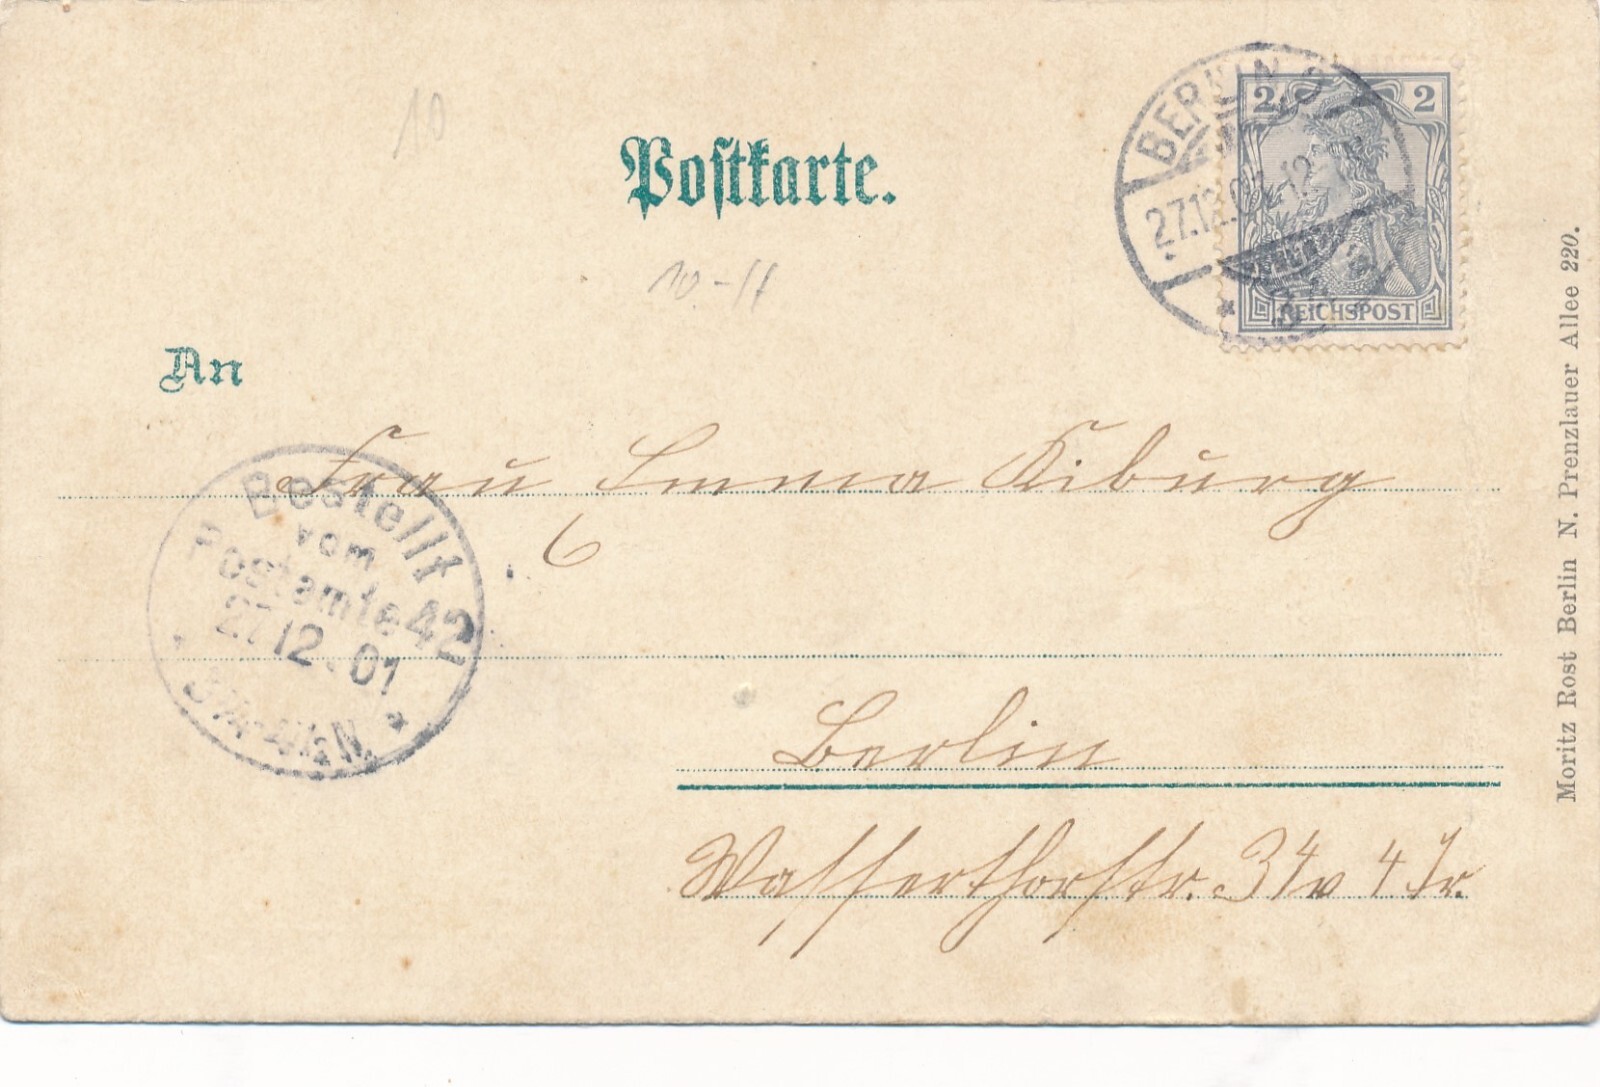 10
Postkarte.
BERLIN S
27.12.01. 12
2 2
REICHSPOST
10.-
An
Frau Emma Kiburg
6
Bestellt
vom
Postamte 42
27 12. 01
Berlin
Wasserthorstr. 34 v 4 Tr.
Moritz Rost Berlin N. Prenzlauer Allee 220.